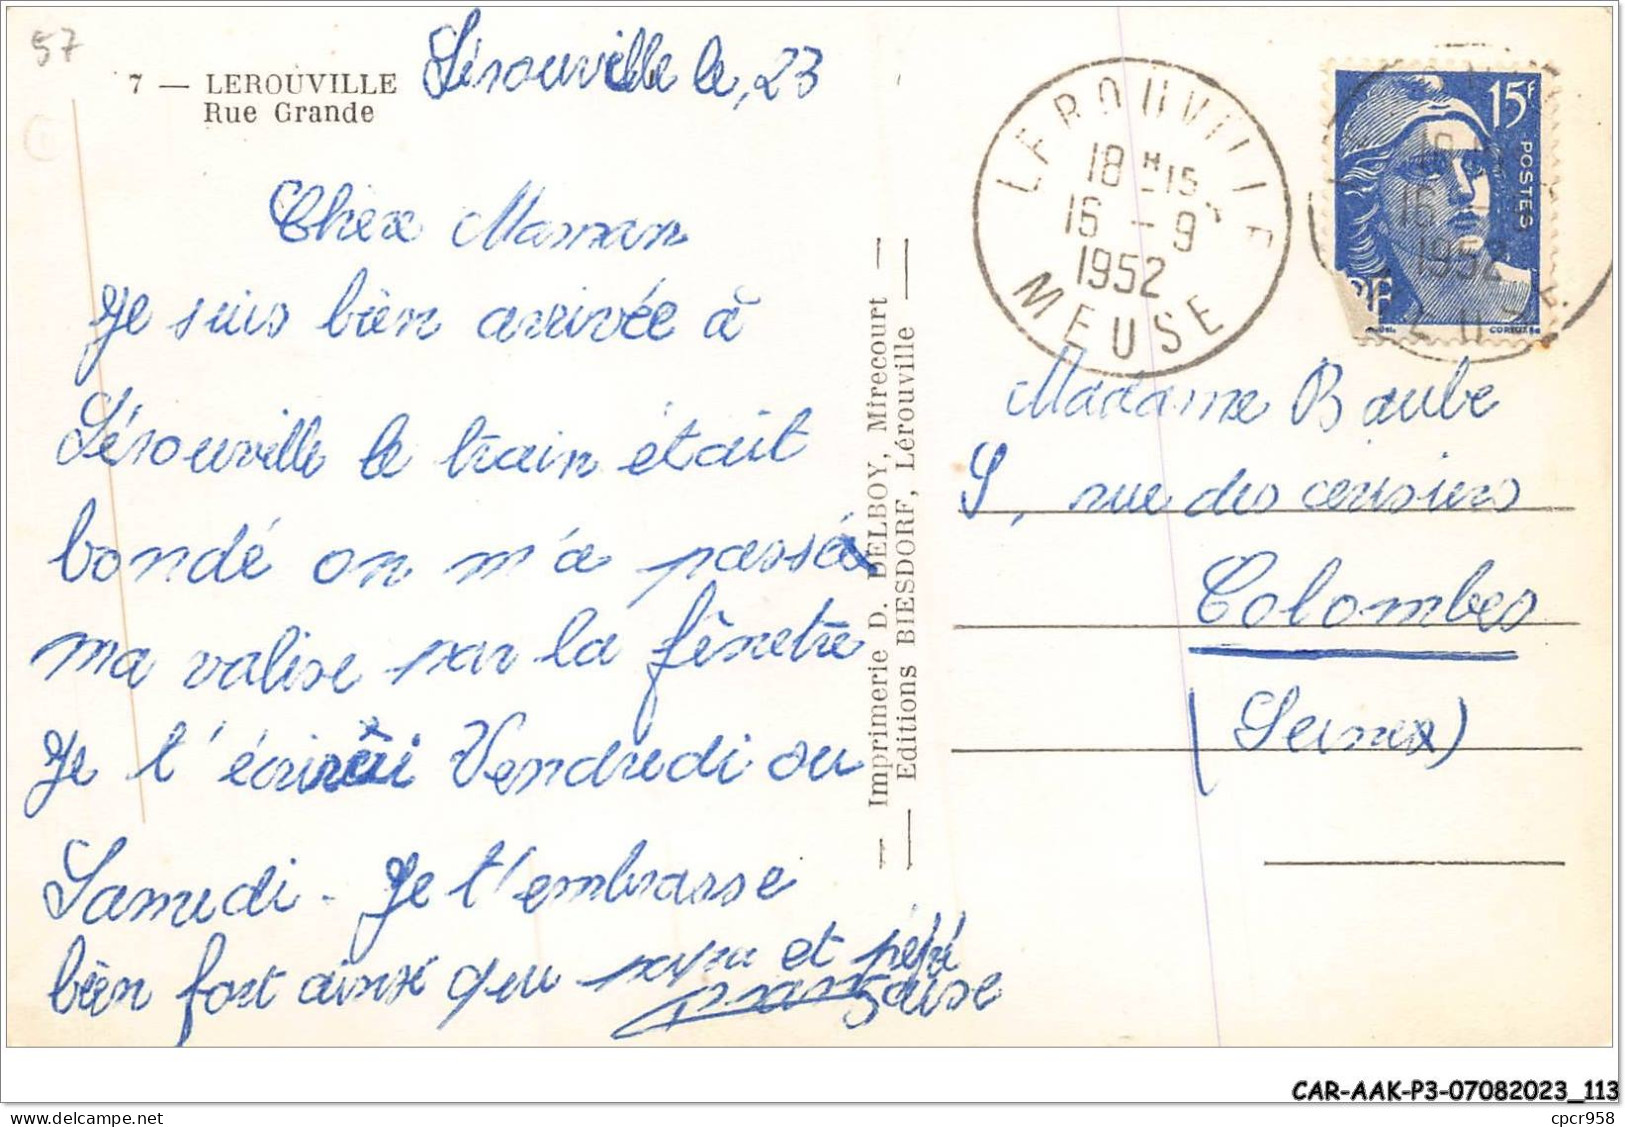 57
7 — LEROUVILLE
Rue Grande
Lérouville le, 23
Chère Maman
Je suis bien arrivée à
Lérouville le train était
bondé on m'a passé
ma valise par la fênetre
Je t'écrirai Vendredi ou
Samedi - Je t'embrasse
bien fort ainsi que papa et pépé
Françoise
Imprimerie D. DELBOY, Mirecourt
Editions BIESDORF, Lérouville
LEROUVILLE
18 H 15
16 - 9
1952
MEUSE
15F
POSTES
RF
16
1952
Madame Baube
9, rue des cerisiers
Colombes
(Seine)
CAR-AAK-P3-07082023_113
Delcampe.net
cpcr958